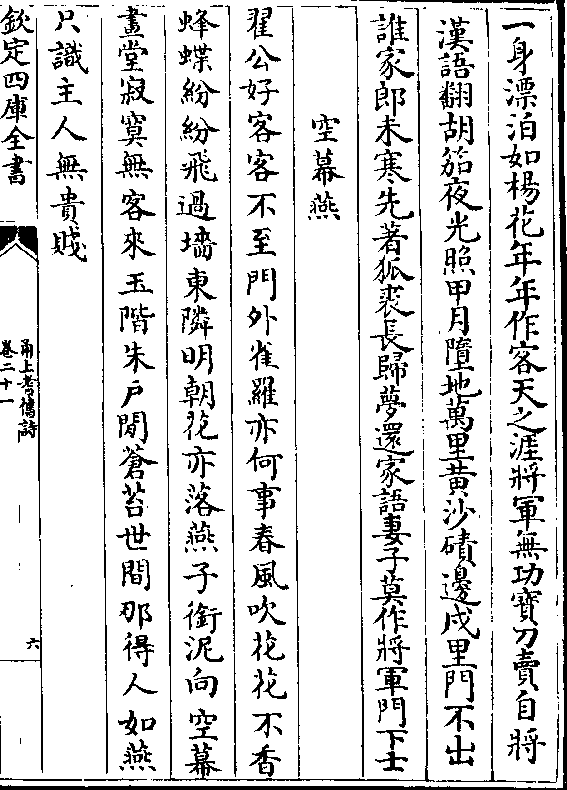 一身漂泊如楊花年年作客天之涯將軍無功寶刀賣自將
漢語翻胡笳夜光照甲月墮地萬里黄沙磧邊戍里門不出
誰家郎未寒先著狐裘長歸夢還家語妻子莫作將軍門下士
空幕燕
翟公好客客不至門外雀羅亦何事春風吹花花不香
蜂蝶紛紛飛過墻東隣明朝花亦落燕子銜泥向空幕
畫堂寂寞無客來玉階朱戶閒蒼苔世間那得人如燕
只識主人無貴賤
欽定四庫全書
甬上耆舊詩
卷二十一
六